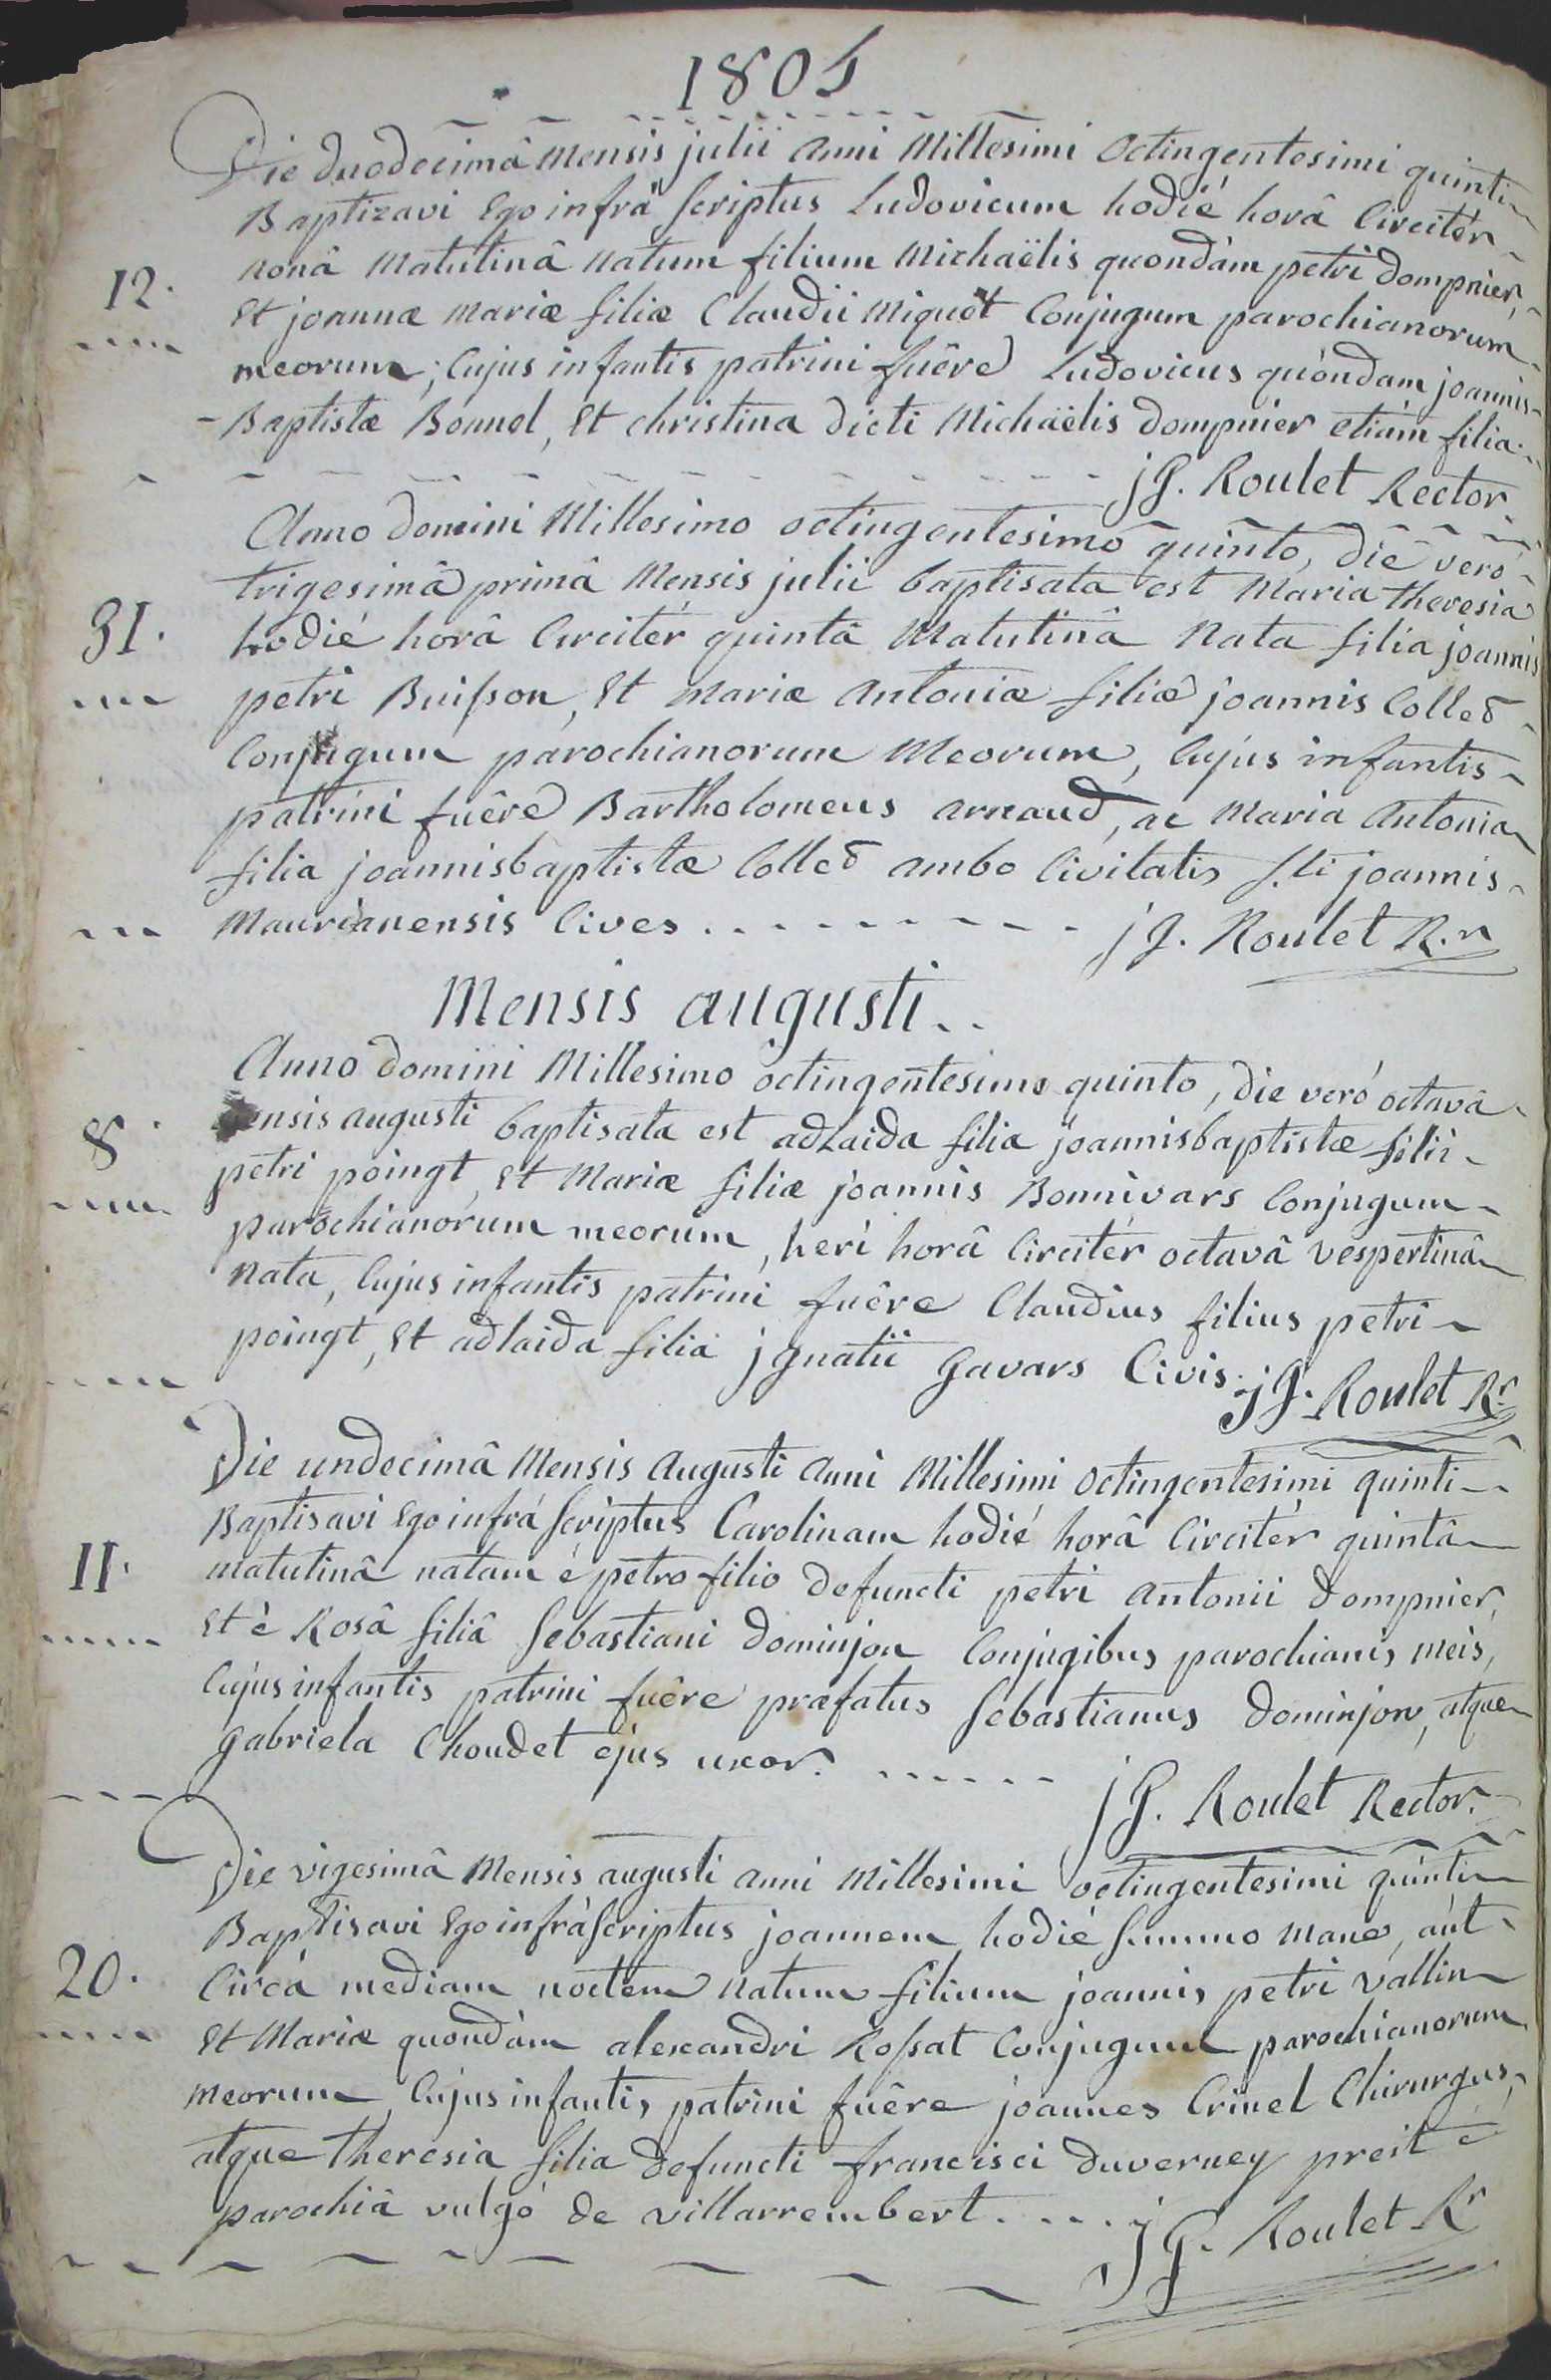 1805
Die duodecimâ Mensis julii anni Millesimi Octingentesimi quinti
Baptizavi Ego infrà scriptus Ludovicum hodié horâ Circitèr
12. nonâ Matutinâ natum filium Michaëlis quondàm petri dompnier,
Et joannæ Mariæ filiæ Claudii Miquet Conjugum parochianorum
meorum; Cujus infantis patrini fuêre Ludovicus quòndam joannis-
-Baptistæ Bonnel, Et christina dicti Michaëlis dompnier etiàm filia.
jG. Roulet Rector.
Anno domini Millesimo octingentesimo quinto, die veró
trigesimâ primâ Mensis julii baptisata est Maria theresia
31. hodié horâ Circitèr quintâ Matutinâ Nata filia joannis
petri Buisson, Et Mariæ Antoniæ filiæ joannis Colled
Conjugum parochianorum Meorum, Cujus infantis
patrini fuêre Bartholomeus arnaud, ac Maria Antonia
filia joannisbaptistæ Colled ambo Civitatis S.ti joannis
Maurianensis Cives. jG. Roulet R.r
Mensis augusti..
Anno domini Millesimo octingentesimo quinto, die veró octavâ
8. mensis augusti baptisata est adlaida filia joannisbaptistæ filii
petri poingt, Et Mariæ filiæ joannis Bonnivars Conjugum
parochianorum meorum, heri horâ Circitèr octavâ vespertinâ
nata, Cujus infantis patrini fuêre Claudius filius petri
poingt, Et adlaida filia jgnatii Gavars Civis. jG. Roulet Rr
Die undecimâ Mensis Augusti Anni Millesimi octingentesimi quinti
Baptisavi Ego infrá scriptus Carolinam hodié horâ Circitèr quintâ
11. matutinâ natam é petro filio defuncti petri antonii dompnier,
Et è Rosâ filiâ Sebastiani dominjon Conjugibus parochianis meis,
Cujus infantis patrini fuêre præfatus Sebastianus dominjon, atque
gabriela Choudet ejus uxor. jG. Roulet Rector.
Die vigesimâ Mensis augusti anni Millesimi octingentesimi quinti
Baptisavi Ego infràscriptus joannem hodié summo mane, aút
20. Circà mediam noctem natum filium joannis petri vallin
Et Mariæ quondàm alexandri Rossat Conjugum parochianorum
meorum, Cujus infantis patrini fuêre joannes Crinel Chirurgus,
atque theresia filia defuncti francisci duverney preit è
parochiâ vulgó de villarrembert. jG. Roulet Rr